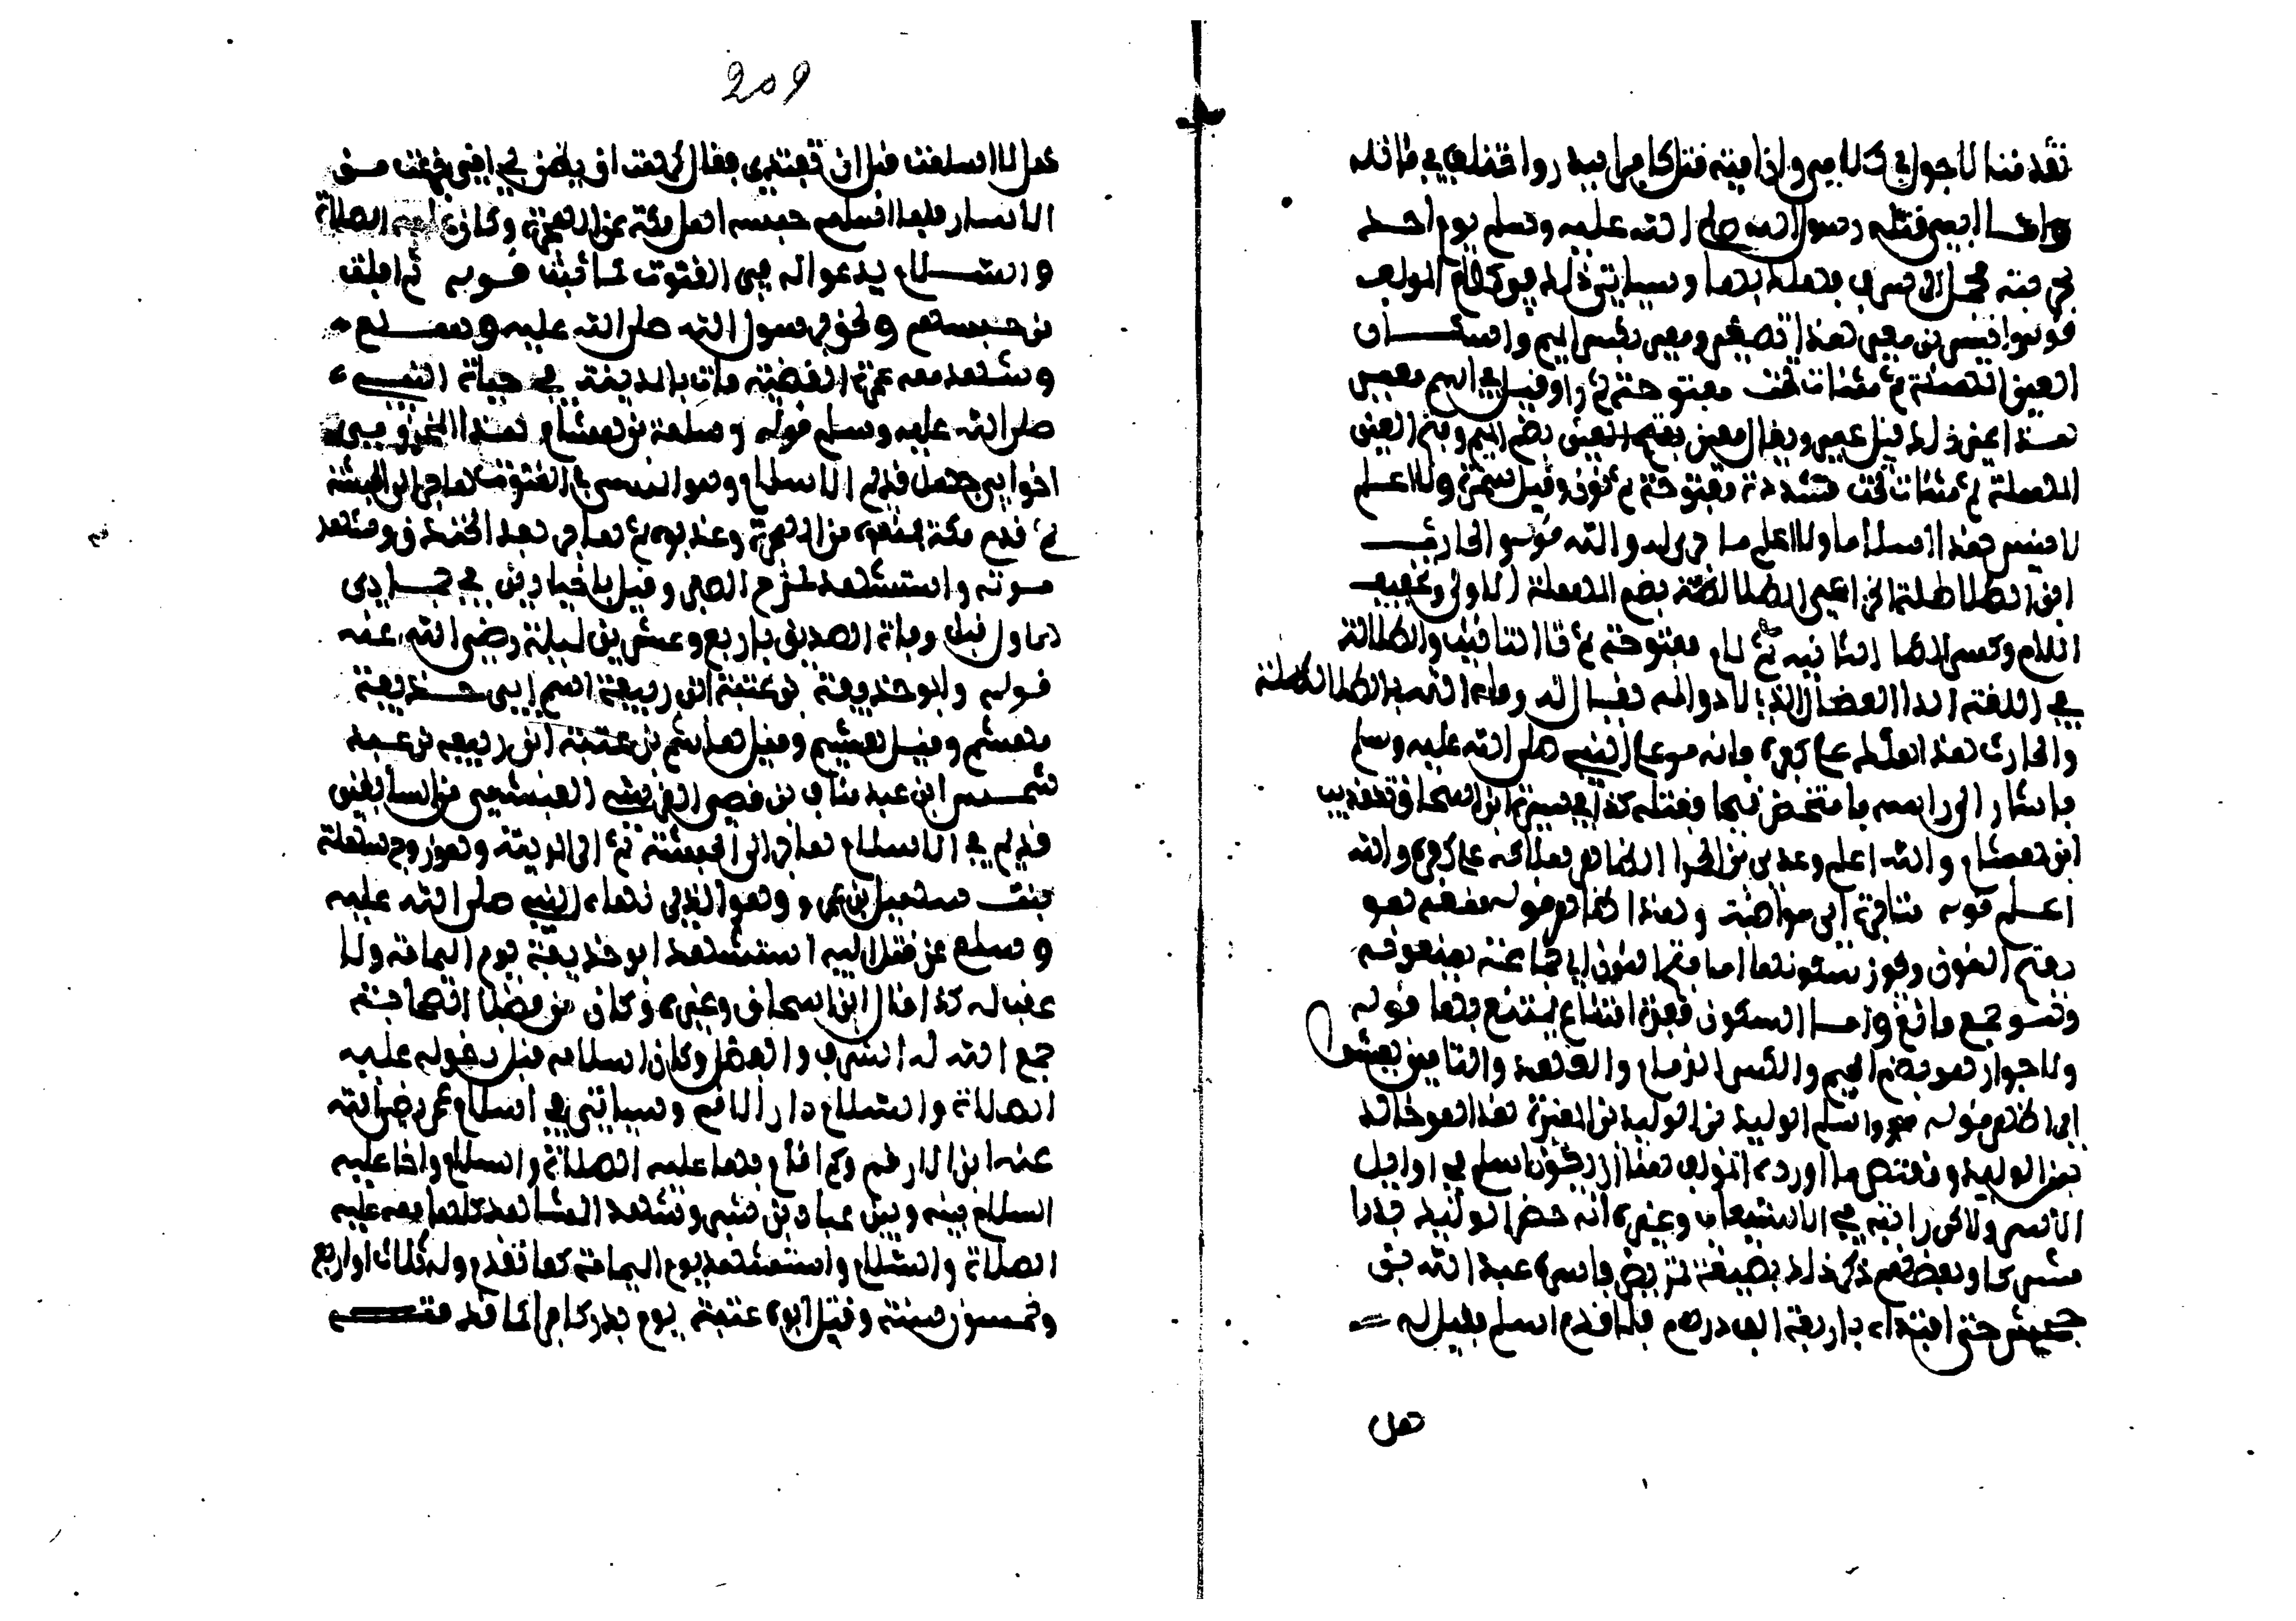 تقدمتا لا حول في كلامه واذا امية قتل كافرا ببدر واختلف في قاتله
واما ابي فقتله رسول الله صلى الله عليه وسلم يوم احد
بحربته فحمل الى سرف فهلك بها وسياتي ذلك في كلام المولف
قوله وا قيس بن
العين المهملة ثم مثناة تحت مفتوحة ثم را وقيل في اسم معير
هذا غير ذلك قيل عمير ويقال معين بضم الميم وفتح العين
المهملة ثم مثناة تحت مشددة مفتوحة ثم نون وقيل سمرة ولا اعلم
لا قيس هذا اسلاما ولا اعلم ما جرى له والله قوله والحارث
ابن الطلاطلة الخزاعي الطلاطلة بضم المهملة الاولى وتخفيف
اللام وكسر الطا الثانية ثم لام مفتوحة ثم تا التانيث والطلاطلة
في اللغة الدا العضال الذي لا دوا له يقال له رماه الله بالطلاطلة
والحارث هذا هلك على كفره فانه مر على النبي صلى الله عليه وسلم
فاشار الى راسه فامتخض قيحا فقتله كذا في سيرة ابن اسحاق تهذيب
ابن هشام والله اعلم وعدي بن الحمرا الظاهر هلاكه على كفره والله
اعلم قوله منافرة اي مواهبة وهذا ظاهر قوله منعة هو
بفتح النون ويجوز سكونها اما فتح النون اي جماعة يمنعونه
وهو جمع مانع واما السكون فعزة امتناع يمتنع بها قوله
ولا جوار هو بضم الجيم والكسر الذمام والعهد والتامين
اي اظهر قوله واسلم الوليد بن الوليد بن المغيرة هذا اخو خالد
بن الوليد ومقتضى ما اورده المولف هنا ان يكون اسلم في اوايل
الامر ولاكن رايته في الاستيعاب وغيره انه حضر الوليد بدرا
مشركا وبعضهم ذكر ذلك بصيغة تمريض فاسره عبد الله بن
جحش حتى افتداه باربعة الف درهم فلما فدي اسلم فقيل له
هل
209
هل لا اسلمت قبل ان تفتدي فقال كرهت ان يظن بي اني جزعت من
الاسار فلما اسلم حبسه اهل مكة عن الهجرة وكان عليه الصلاة
والسلام يدعو له في القنوت كما ثبت قوله ثم افلت
من حبسهم ولحق برسول الله صلى الله عليه وسلم
وشهد معه عمرة القضية مات بالمدينة في حياة النبي
صلى الله عليه وسلم قوله وسلمة بن هشام هذا المخزومي
اخو ابي جهل قديم الاسلام وهو المسمى في القنوت هاجر الى الحبشة
ثم قدم مكة فمنعوه من الهجرة وعذبوه ثم هاجر بعد الخندق وشهد
موتة واستشهد بمرج الصفر وقيل باجنادين في جمادى
الاول قبل وفاة الصديق باربع وعشرين ليلة رضي الله عنه
قوله وابو حذيفة بن عتبة ابن ربيعة اسم ابي حذيفة
مهشم وقيل هشيم وقيل هاشم بن عتبة ابن ربيعة بن عبد
شمس ابن عبد مناف بن قصي القرشي العبشمي من السابقين
قديم في الاسلام هاجر الى الحبشة ثم الى المدينة وهو زوج سهلة
بنت سهيل بن عمرو وهو الذي نهاه النبي صلى الله عليه
وسلم عن قتل ابيه استشهد ابو حذيفة يوم اليمامة ولا
عقب له كذا قال ابن اسحاق وغيره وكان من فضلا الصحابة
جمع الله له الشرف والفضل وكان اسلامه قبل دخوله عليه
الصلاة والسلام دار الارقم وسياتي في اسلام عمر رضي الله
عنه ابن الارقم وكم اقام بها عليه الصلاة والسلام واخا عليه
السلام بينه وبين عباد بن بشر وشهد المشاهد كلها معه عليه
الصلاة والسلام واستشهد يوم اليمامة كما تقدم وله ثلاث او اربع
وخمسون سنة وقتل ابوه عتبة يوم بدر كافرا كما